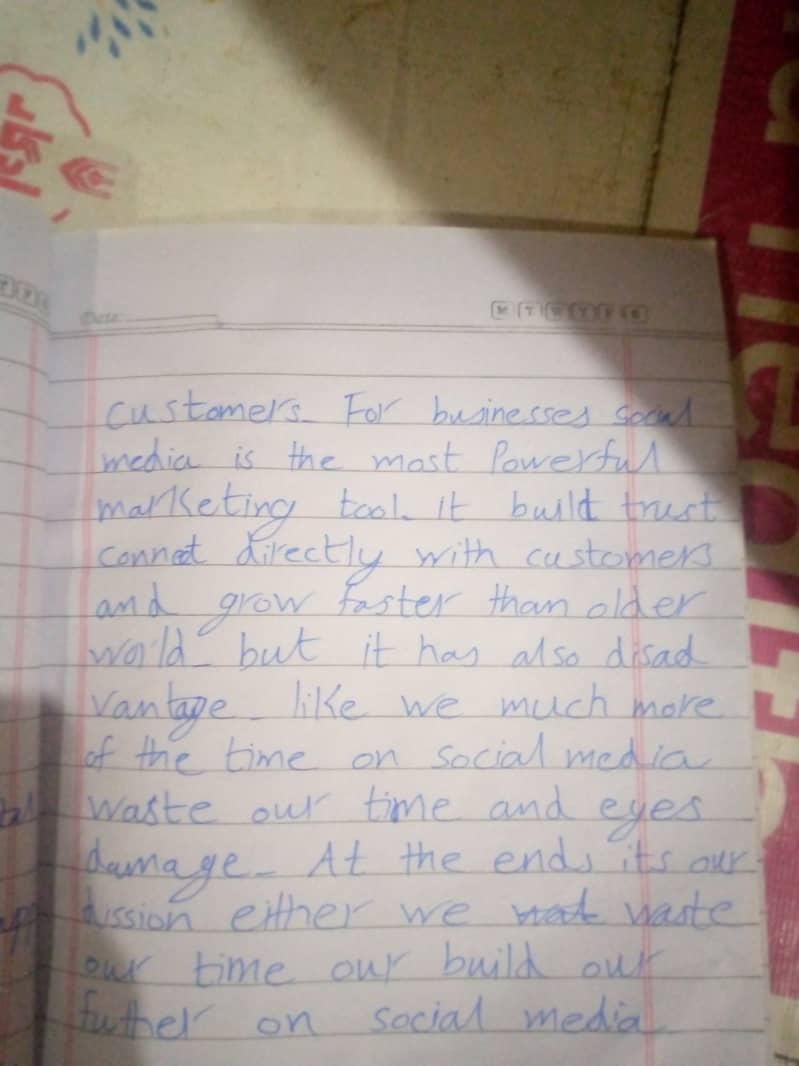 Date
M T W T F S
customers. For businesses social
media is the most Powerful
marketing tool. it build trust
connect directly with customers
and grow faster than older
world. but it has also disad
vantage. like we much more
of the time on social media
waste our time and eyes
damage. At the ends its our
dission either we waste
our time our build our
futher on social media